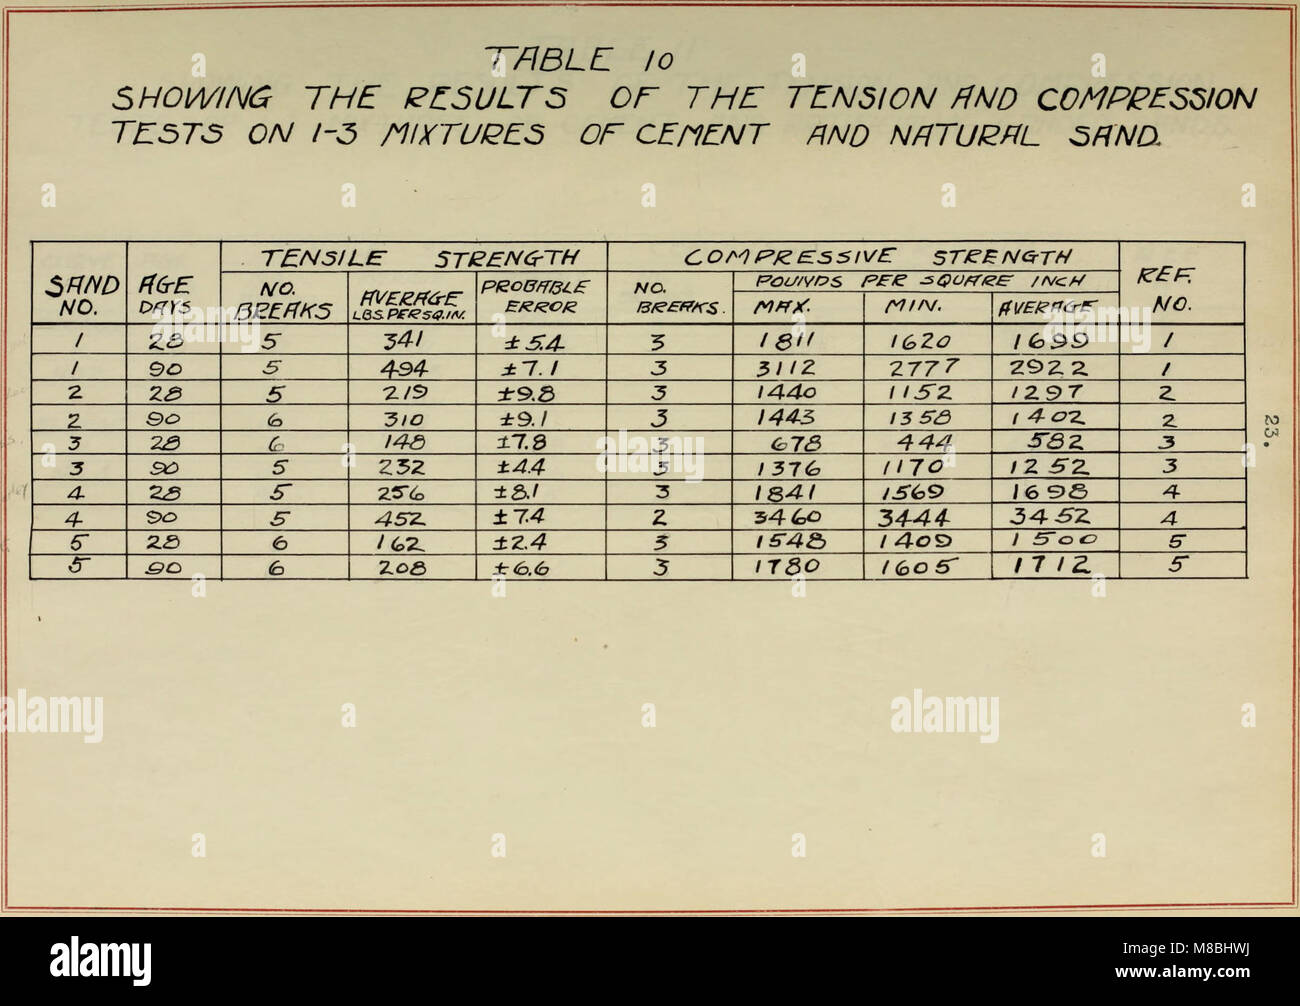 TABLE 10
SHOWING THE RESULTS OF THE TENSION AND COMPRESSION
TESTS ON 1-3 MIXTURES OF CEMENT AND NATURAL SAND.
SAND NO. AGE DAYS TENSILE STRENGTH COMPRESSIVE STRENGTH REF. NO.
NO. BREAKS AVERAGE LBS. PER SQ. IN. PROBABLE ERROR NO. BREAKS. POUNDS PER SQUARE INCH
MAX. MIN. AVERAGE
1 28 5 341 ±5.4 3 1811 1620 1699 1
1 90 5 494 ±7.1 3 3112 2777 2922 1
2 28 5 219 ±9.8 3 1440 1152 1297 2
2 90 6 310 ±9.1 3 1443 1358 1402 2
3 28 6 148 ±7.8 3 678 444 582 3
3 90 5 232 ±4.4 3 1376 1170 1252 3
4 28 5 256 ±8.1 3 1841 1569 1698 4
4 90 5 452 ±7.4 2 3460 3444 3452 4
5 28 6 162 ±2.4 3 1548 1409 1500 5
5 90 6 208 ±6.6 3 1780 1605 1712 5
23.
a alamy
alamy
Image ID: M8BHWJ
www.alamy.com